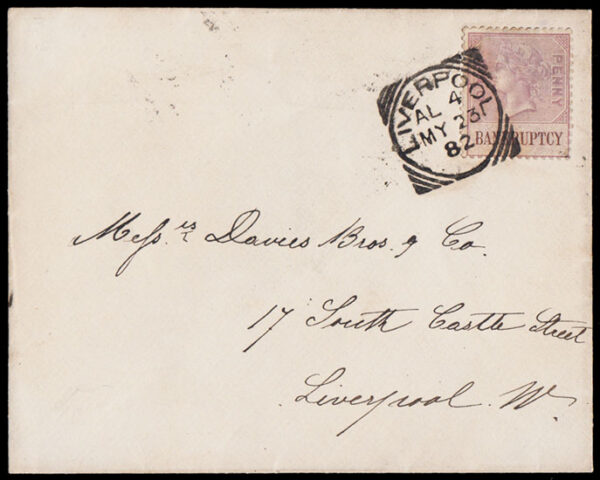 PENNY
BANKRUPTCY
LIVERPOOL
AL 4
MY 23
82
Messrs Davies Bros. & Co.
17 South Castle Street
Liverpool. W.